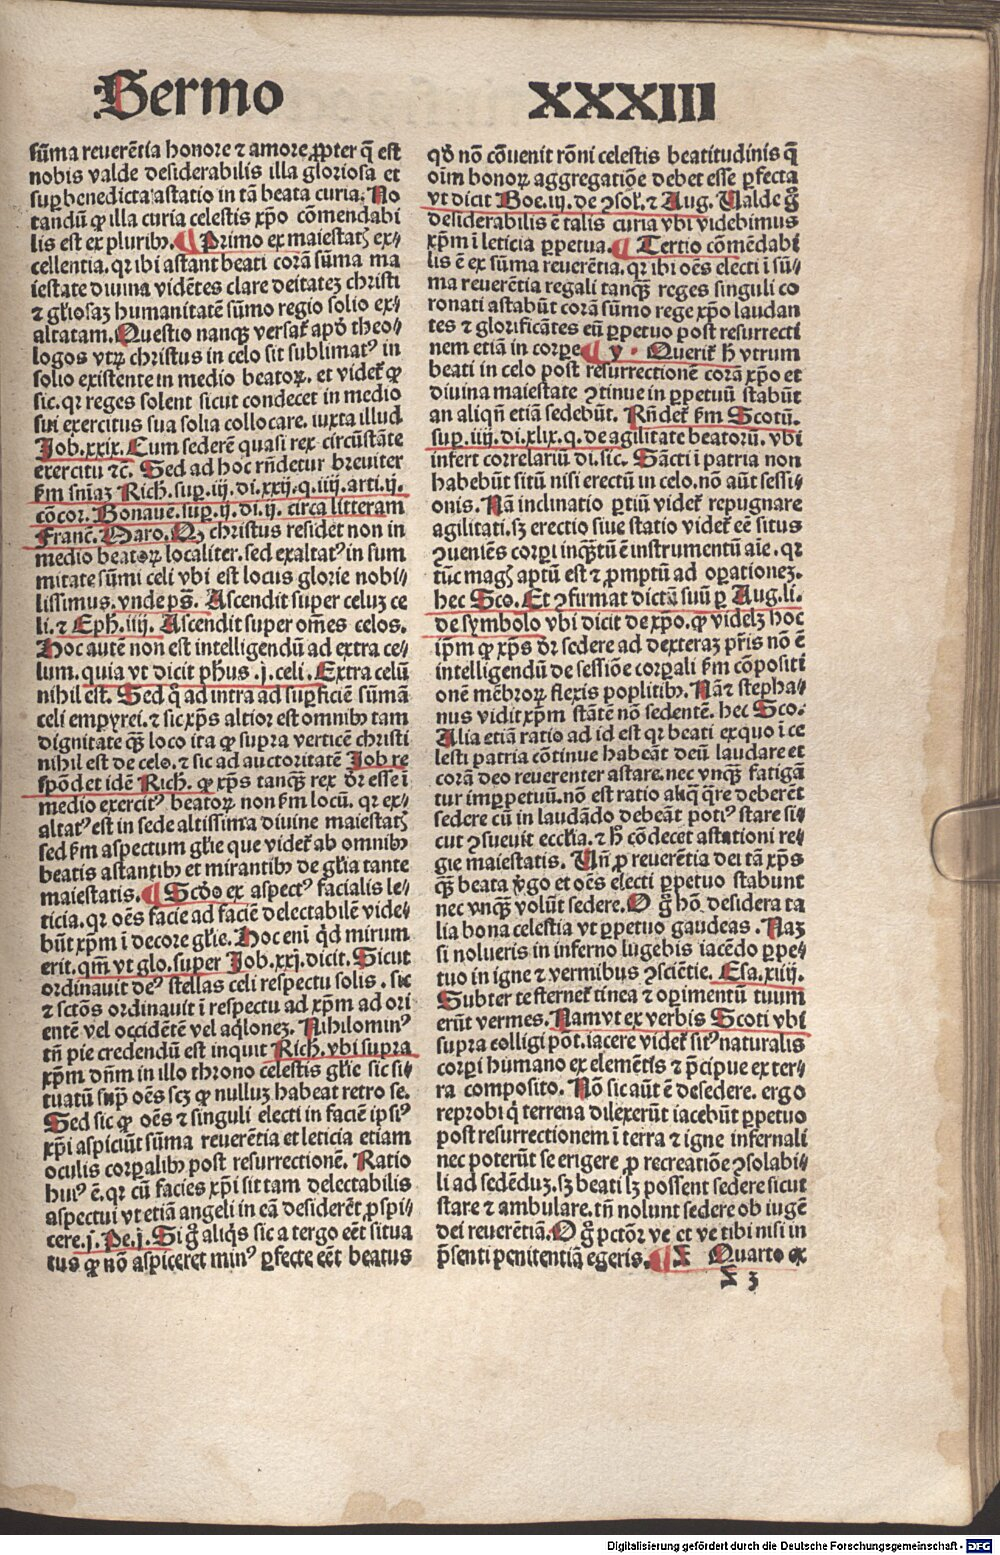 Sermo XXXIII
sūma reuerētia honore ⁊ amore, ꝓpter q̄ est
nobis valde desiderabilis illa gloriosa et
suꝑbenedicta astatio in tā beata curia. No
tandū ꝙ illa curia celestis xp̄o cōmendabi
lis est ex pluribꝫ. ¶ Primo ex maiestatꝭ ex⸗
cellentia. qꝛ ibi astant beati corā sūma ma
iestate diuina vidētes clare deitateꝫ christi
⁊ gl̓iosaꝫ humanitatē sūmo regio solio ex⸗
altatam. Questio nanqꝫ versat᷑ apd̓ theo⸗
logos vtꝝ christus in celo sit sublimatꝰ in
solio existente in medio beatoꝝ. et videt᷑ ꝙ
sic. qꝛ reges solent sicut condecet in medio
sui exercitus sua solia collocare. iuxta illud
Job.xxix. Cum sederē quasi rex circūstāte
exercitu ⁊c̄. Sed ad hoc rn̄detur breuiter
ẜm sn̄iaꝫ Rich. suꝑ.iij.di.xxij.q.iiij.arti.ij.
cōcor. Bonaue. suꝑ.ij.di.ij. circa litteram
Franc̄. Maro. Qꝫ christus residet non in
medio beatoꝝ localiter. sed exaltatꝰ in sum
mitate sūmi celi vbi est locus glorie nobi⸗
lissimus. vnde ps̄. Ascendit super celuꝫ ce
li. ⁊ Eph̓. iiij. Ascendit super om̄es celos.
Hoc autē non est intelligendū ad extra ce⸗
lum. quia vt dicit ph̓us .j. celi. Extra celū
nihil est. Sed q̓ ad intra ad suꝑficiē sūmā
celi empyrei. ⁊ sic xp̄s altior est omnibꝫ tam
dignitate qꝫ̄ loco ita ꝙ supra verticē christi
nihil est de celo. ⁊ sic ad auctoritatē Job re
spōdet idē Rich. ꝙ xp̄s tanqꝫ rex dr̄ esse ī
medio exercitꝰ beatoꝝ non ẜm locū. qꝛ ex⸗
altatꝰ est in sede altissima diuine maiestatꝭ
sed ẜm aspectum gl̓ie que videt᷑ ab omnibꝫ
beatis astantibꝫ et mirantibꝫ de gl̓ia tante
maiestatis. ¶ Scd̓o ex aspectꝰ facialis le⸗
ticia. qꝛ oēs facie ad faciē delectabilē vide⸗
būt xp̄m ī decore gl̓ie. Hoc eni q̓d mirum
erit. qm̄ vt glo. super Job.xxj. dicit. Sicut
ordinauit deꝰ stellas celi respectu solis. sic
⁊ sctōs ordinauit ī respectu ad xp̄m ad ori
entē vel occidētē vel aq̓loneꝫ. Nihilominꝰ
tn̄ pie credendū est inquit Rich. vbi supra
xp̄m dn̄m in illo throno celestis gl̓ie sic si⸗
tuatū sup̄ oēs scꝫ ꝙ nulluꝫ habeat retro se.
Sed sic ꝙ oēs ⁊ singuli electi in faciē ipsiꝰ
xp̄i aspiciūt sūma reuerētia et leticia etiam
oculis corꝑalibꝫ post resurrectionē. Ratio
huiꝰ ē. qꝛ cū facies xp̄i sit tam delectabilis
aspectui vt etiā angeli in eā desiderēt ꝓspi⸗
cere.j. Pe.j. Si g̓ aliq̓s sic a tergo eēt situa
tus ꝙ nō aspiceret minꝰ ꝑfecte eēt beatus
qd̓ nō cōuenit rōni celestis beatitudinis q̄
oīm bonoꝝ aggregatiōe debet esse ꝑfecta
vt dicit Boe.iij. de ꝯsol̓. ⁊ Aug. Ualde g̓
desiderabilis ē talis curia vbi videbimus
xp̄m ī leticia ꝑpetua. ¶ Tertio cōmēdabi
lis ē ex sūma reuerētia. qꝛ ibi oēs electi ī sū⸗
ma reuerētia regali tanqꝫ reges singuli co
ronati astabūt corā sūmo rege xp̄o laudan
tes ⁊ glorificātes eū ꝑpetuo post resurrecti
nem etiā in corꝑe ¶ y. Querit᷑ h̓ vtrum
beati in celo post resurrectionē corā xp̄o et
diuina maiestate ꝯtinue in ꝑpetuū stabūt
an aliqn̄ etiā sedebūt. Rn̄det᷑ ẜm Scotū.
suꝑ.iiij.di.xlix.q. de agilitate beatorū. vbi
infert correlariū di. sic. Sācti ī patria non
habebūt sitū nisi erectū in celo. nō aūt sessi⸗
onis. Nā inclinatio ꝑtiū videt᷑ repugnare
agilitati. sꝫ erectio siue statio videt᷑ eē situs
ꝯueniēs corꝑi inqꝫtū ē instrumentū aīe. qꝛ
tūc magꝭ aptū est ⁊ ꝓmptū ad oꝑationeꝫ.
hec Sco. Et ꝯfirmat dictū suū ꝑ Aug. li.
de symbolo vbi dicit de xp̄o. ꝙ videlꝫ hoc
ip̄m ꝙ xp̄s dr̄ sedere ad dexteraꝫ pr̄is nō ē
intelligendū de sessiōe corꝑali ẜm cōpositi
onē mēbroꝝ flexis poplitibꝫ. Nā ⁊ stepha⸗
nus vidit xp̄m stātē nō sedentē. hec Sco.
Alia etiā ratio ad id est qꝛ beati exquo ī ce
lesti patria cōtinue habeāt deū laudare et
corā deo reuerenter astare. nec vnqꝫ fatigā
tur imꝑpetuū. nō est ratio aliq̄ q̄re deberēt
sedere cū in laudādo debeāt potiꝰ stare si⸗
cut ꝯsueuit eccl̓ia. ⁊ h̓ cōdecet astationi re⸗
gie maiestatis. Un̄ ꝓ reuerētia dei tā xp̄s
qꝫ̄ beata v̓go et oēs electi ꝑpetuo stabunt
nec vnqꝫ volūt sedere. O g̓ hō desidera ta
lia bona celestia vt ꝑpetuo gaudeas. Naꝫ
si nolueris in inferno lugebis iacēdo ꝑpe⸗
tuo in igne ⁊ vermibus ꝯsciētie. Esa.xiiij.
Subter te sternet᷑ tinea ⁊ oꝑimentū tuum
erūt vermes. Nam vt ex verbis Scoti vbi
supra colligi pōt. iacere videt᷑ sitꝰ naturalis
corꝑi humano ex elemētis ⁊ p̄cipue ex ter⸗
ra composito. Nō sic aūt ē de sedere. ergo
reprobi q̓ terrena dilexerūt iacebūt ꝑpetuo
post resurrectionem ī terra ⁊ igne infernali
nec poterūt se erigere ꝓ recreatiōe ꝯsolabi⸗
li ad sedēduꝫ. sꝫ beati lꝫ possent sedere sicut
stare ⁊ ambulare. tn̄ nolunt sedere ob iugē
dei reuerētiā. O g̓ pctōr ve et ve tibi nisi in
p̄senti penitentiā egeris. ¶ Quarto ex